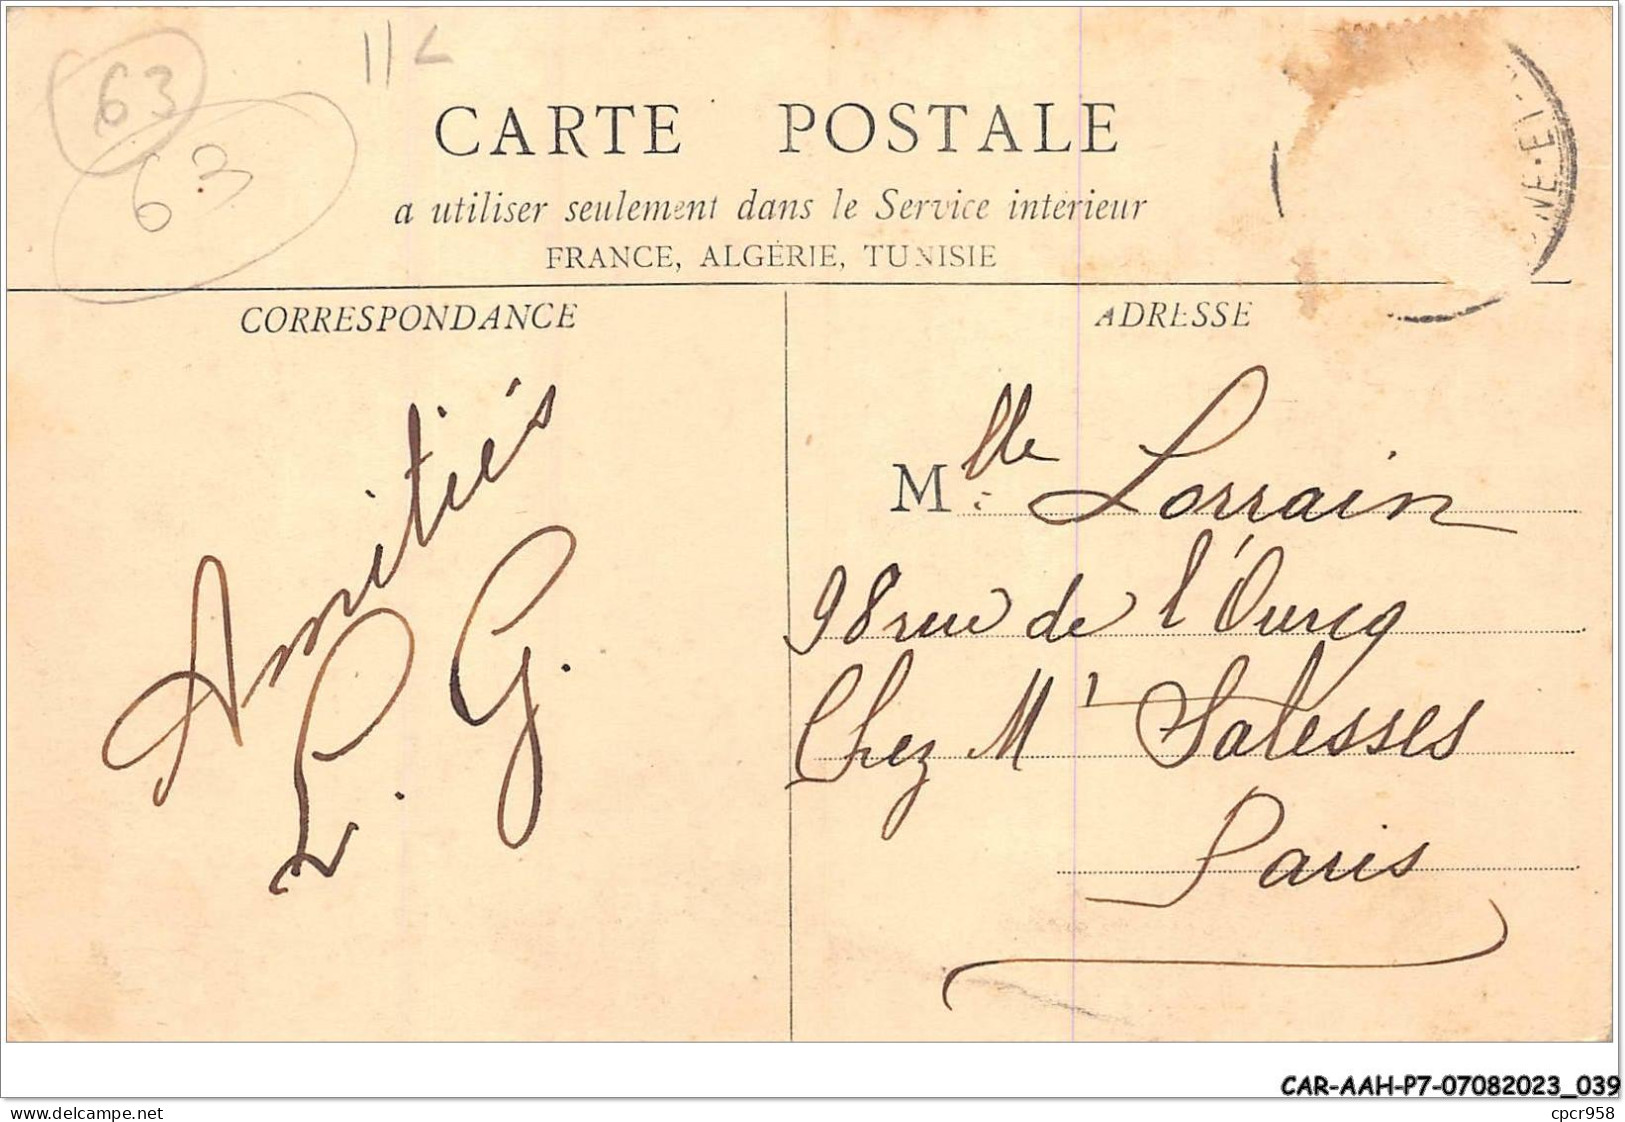 63
63
CARTE POSTALE
a utiliser seulement dans le Service intérieur
FRANCE, ALGÉRIE, TUNISIE
CORRESPONDANCE
Amitiés
L. G.
ADRESSE
Mlle Lorrain
98 rue de l'Ourcq
Chez Mr Salesses
Paris
CAR-AAH-P7-07082023_039
www.delcampe.net
cpcr958